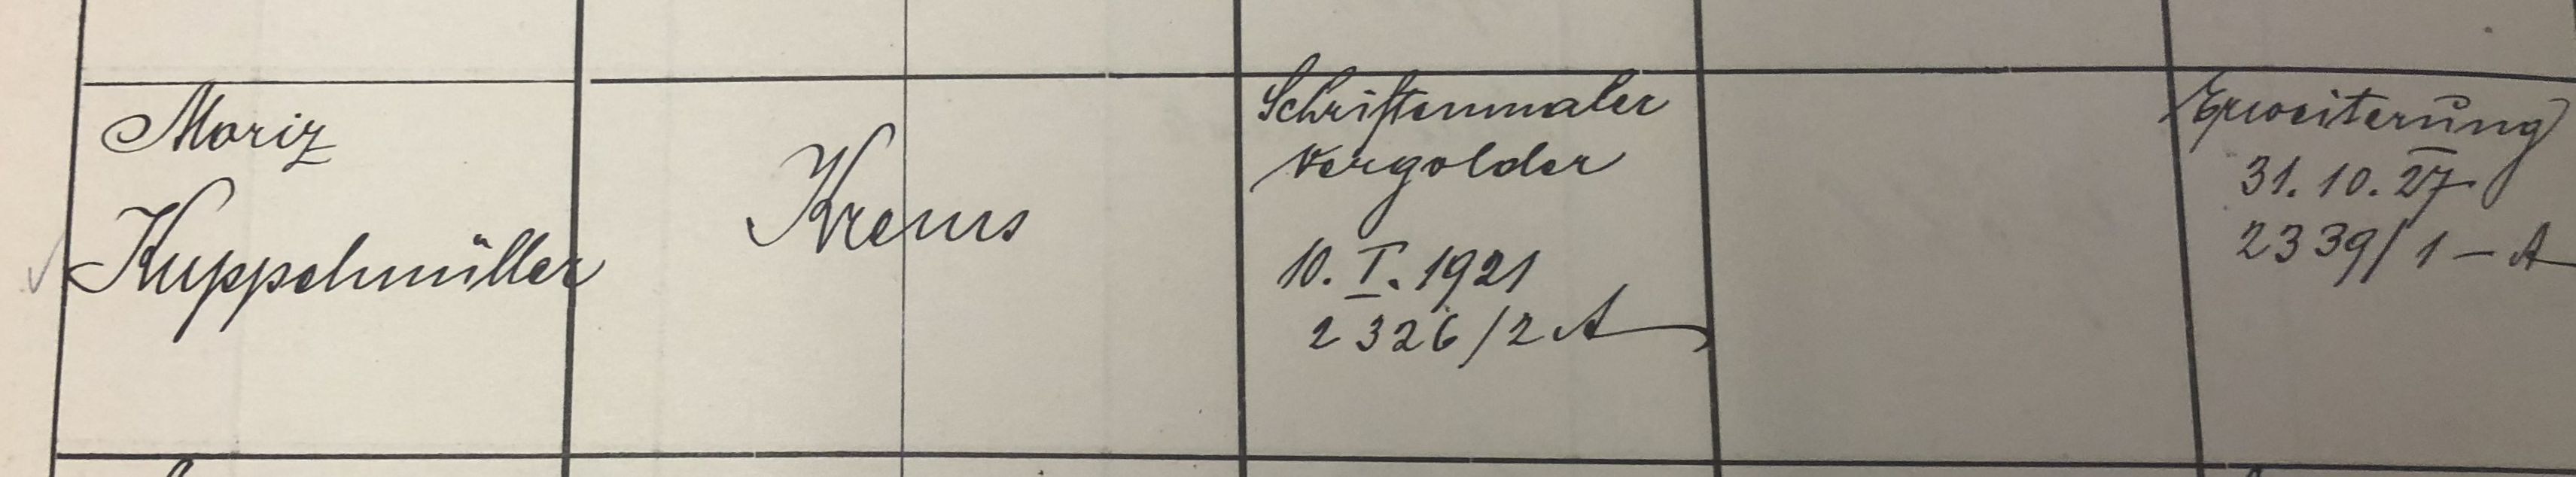 Moriz
Kuppelmüller
Krems
Schriftenmaler
Vergolder
10. I. 1921
2326/2 A
Erweiterung
31. 10. 27
2339/1 – A